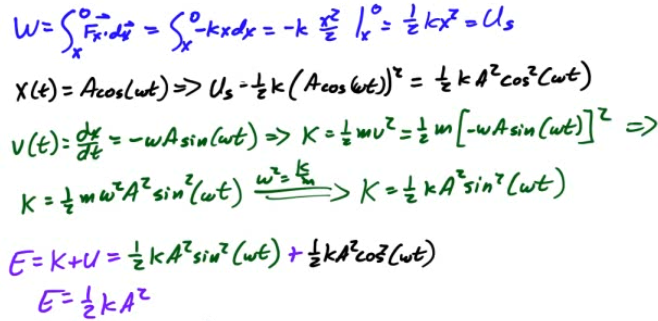 W = ∫ₓ⁰ F⃗ₓ·dx⃗ = ∫ₓ⁰ -kxdx = -k x²/2 |ₓ⁰ = ½kx² = Uₛ
x(t) = Acos(ωt) => Uₛ = ½k(Acos(ωt))² = ½kA²cos²(ωt)
v(t) = dx/dt = -ωAsin(ωt) => K = ½mv² = ½m[-ωAsin(ωt)]² =>
K = ½mω²A²sin²(ωt) =ω²=k/m=> K = ½kA²sin²(ωt)
E = K+U = ½kA²sin²(ωt) + ½kA²cos²(ωt)
E = ½kA²